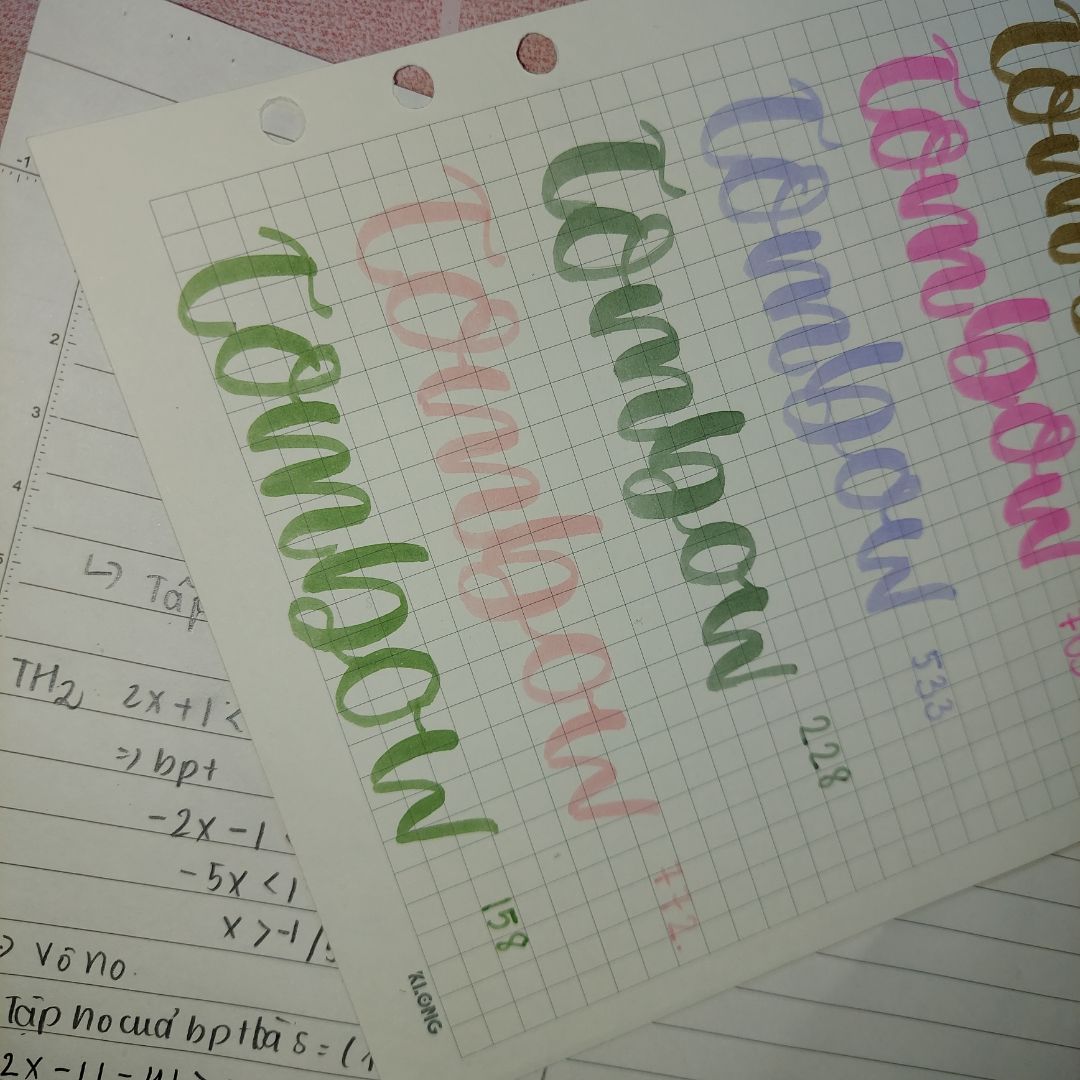 Tombow
158
Tombow
772.
Tombow
228
Tombow
533
Tombow
703
KLONG
-1
2
3
4
↳ Tập
TH2 2x+1<
=> bpt
-2x-1
-5x<1
x>-1/5
=> Vô no.
Tập no của bpt là S=(